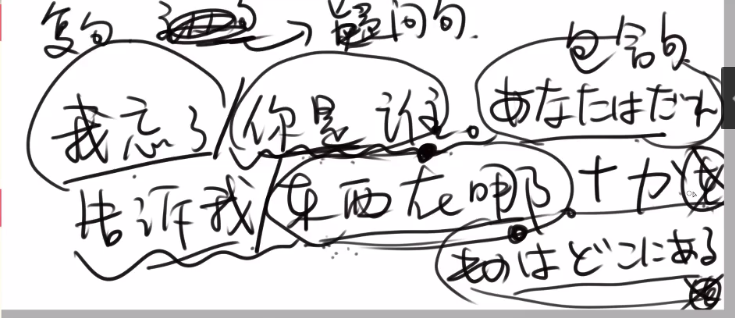 复句 → 疑问句
包含句
我忘了/你是谁。あなたはだれ
告诉我/东西在哪。+か
ものはどこにある